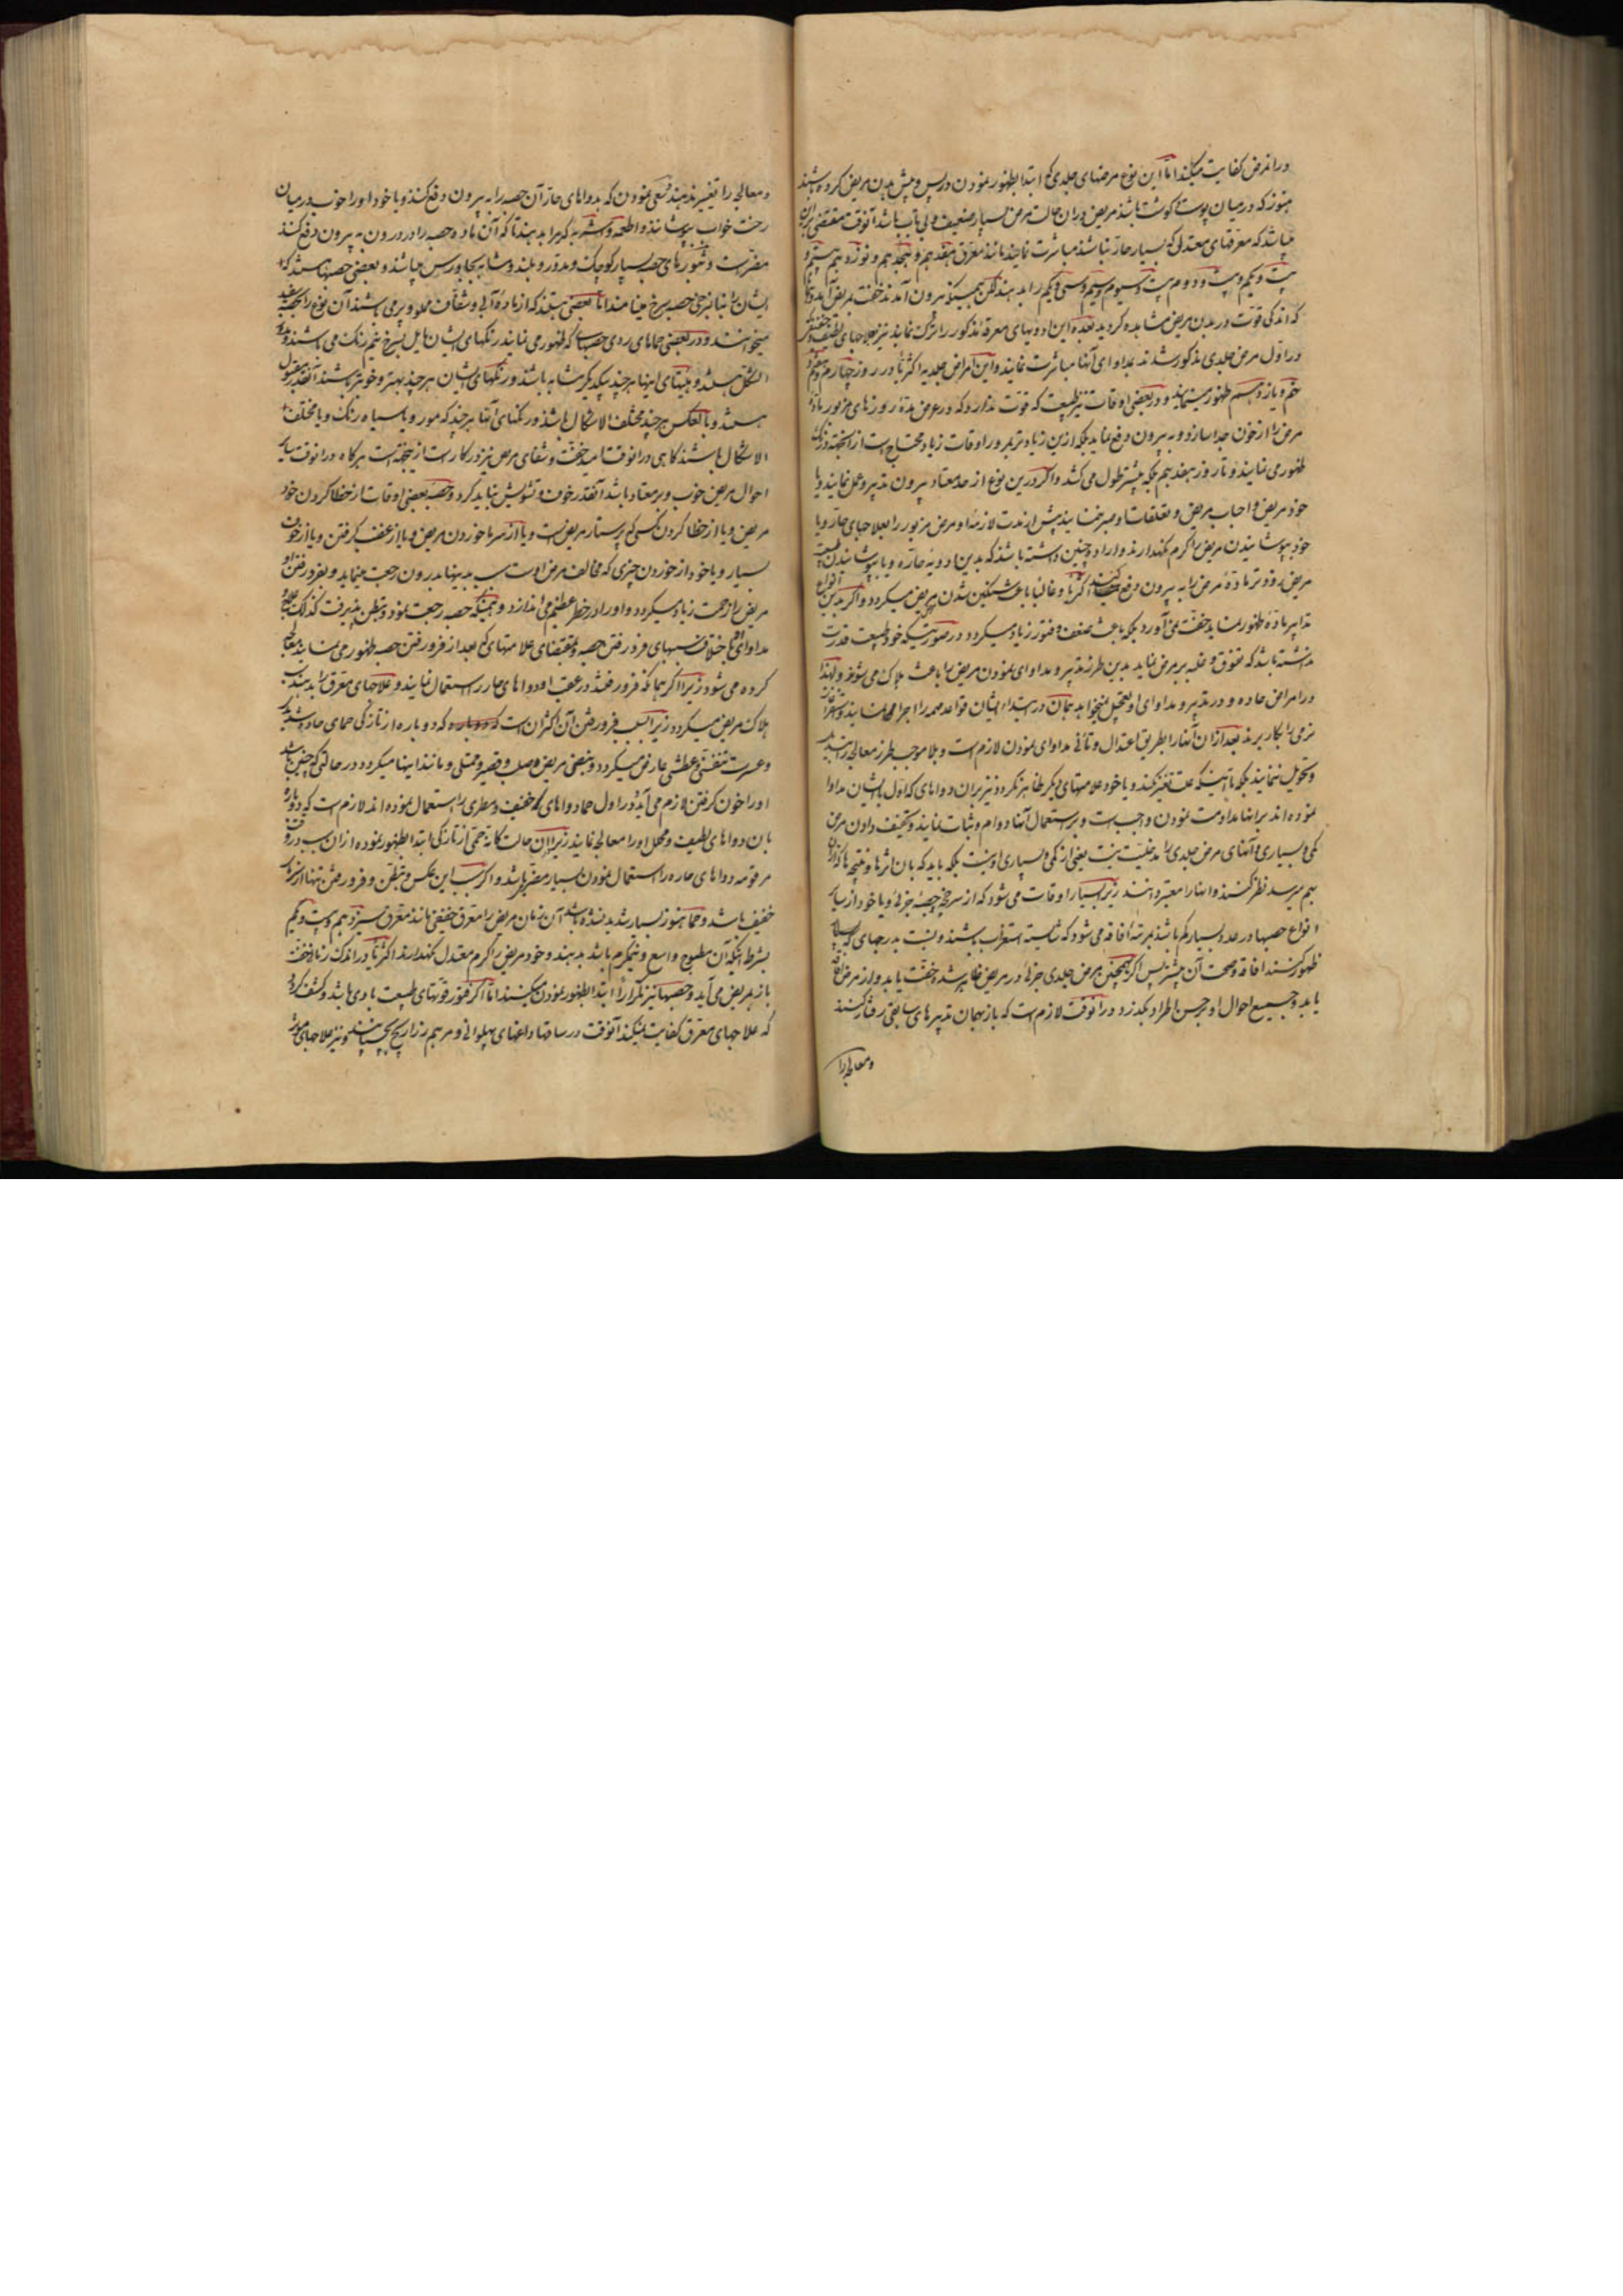 در انمرض کفایت میکند اما این نوع مرضهای جلدی که ابتدا بظهور نمودن در پس و پیش بدن مریض کرده باشند
هنوز که در میان پوست و گوشت باشد مریض در ان حالت مرض بسیار ضعیف و بی تاب باشد آنوقت مقتضی
میباشد که معرقهای معتدلی که بسیار حار نباشد مباشرت نمایند مانند معرق هفدهم و هجدهم و نوزدهم و بیستم و
بیست و یکم و بیست و دوم و بیست و سیوم و سیم و سی و یکم را بدهند لکن همینکه بیرون آمدند خفت بمریض آید و
که اندکی قوت در بدن مریض مشاهده کردید بعده این ادویهای معرقه مذکور را ترک نمایند نیز بعلاجهای لطیف و خفیف که
در اول مرض جلدی مذکور شدند بمداوای آنها مباشرت نمایند و این امراض جلدیه اکثرا در روز چهارم و هفتم و
نهم و یازدهم ظهور مینمایند و در بعضی اوقات نیز طبیعت که قوت ندارد که در عرض مدة روزهای مزبور مادة
مرض را از خون جدا سازد و به بیرون دفع نماید بلکه ازین زیادتر بمرور اوقات زیاد محتاج است
ظهور می نمایند و تا روز هفدهم بلکه بیشتر طول می کشد و اکر درین نوع از حد معتاد بیرون تدبیر و عمل نمایند و یا
خود مریض و احباب مریض و تعلقات او صبر نمایند پیش از مدت لازمه او مرض مزبور را بعلاجهای حار و یا
خود بپوشانیدن مریض را کرم نکهدارند و اراده چنین داشته باشد که بدین ادویه حاره و یا بپوشانیدن طبیعت
مریض زودتر مادة مرض را به بیرون دفع کنند اکثرا و غالبا باعث سنگین شدن مریض میکردد و اکر بدین انواع
تدابیر مادة ظهور نماید خفت نمی آورد بلکه باعث ضعف و فتور زیاد میکردد در صورتیکه خود طبیعت قدرت
نداشته باشد که تفوق و غلبه بر مرض نماید بدین طرز تدبیر و مداوای نمودن مریض را باعث هلاک می شوند و لهذا
در امراض حاده و در تدبیر و مداوای او تعجیل نمیخواهد همان در ابتداء ایشان قواعد مهمه را اجرا نمایند
نرمی را بکار برند بعد از ان آنها را بطریق اعتدال و تأنی مداوای نمودن لازم است و بلا موجب طرز معالجه را تبدیل
و تحویل ننمایند بلکه تا اینکه علت تغییر نکند و یا خود علامتهای دیکر ظاهر نکردد نیز بران دواهای که اول بایشان مداوا
نموده اند بر انها مداومت نمودن واجب است و بر استعمال آنها دوام و ثبات نمایند و تخفیف دادن مرض
کمی و بسیاری و آنهای مرض جلدی را مدخلیت نیست یعنی از کمی و بسیاری او نیست بلکه باید که بان اثرها و نتیجه ها که ازان
بهم میرسد نظر کنند و انها را معتبر دانند زیرا بسیار اوقات می شود که از سرخجه حصبه جزئی و یا خود از سایر
انواع حصبها در عدد بسیار کم باشد بمرتبه افاقه می شود که شایسته استغراب باشند و نسبت بدرجهای که بسیار
ظهور کنند افاقه و صحت آن بیشتر پس اکر همچنین مرض جلدی جزئی در مریض ظاهر شد و خفت یابد و از مرض افاقه
یابد و جمیع احوال او بر حسن اطراد بکذرد در آنوقت لازم است که باز بهمان تدبیرهای سابقی رفتار کنند
و معالجه را
و معالجه را تغییر ندهند و سعی نمودن که بدواهای حار آن حصبه را به بیرون دفع کنند و یا خود او را خوب در میان
رخت خواب بپوشانند و اطعمه و اشربه کرم را بدهند تا که آن ماده حصبه را در درون به بیرون دفع کنند
مضر است و بثورهای حصبه بسیار کوچک و مدور و بلند و مشابه بجاورس میباشد و بعضی حصبها هستند که
ایشان را بنا بر حصبه سرخ مینامند اما بعضی هستند که از مادة آبی و شفاف مملو و پر می باشند آن نوع را حصبه سفید
میخوانند و در بعضی حماهای ردی حصبها که ظهور می نمایند رنکهای ایشان مایل بسرخ نیم رنک می باشند و
الشکل باشند و هیئتهای اینها هر چند بیکدیکر مشابه باشند و رنکهای ایشان هر چند بهتر و خوبتر باشند آنقدر مقبول
هستند و بالعکس هر چند مختلف الاشکال باشند و رنکهای آنها هر چند که مور و یا سیاه رنک و یا مختلف
الاشکال باشند کاهی در آنوقت امید خفت و شفای مرض نیز در کار است از نتیجه است هر کاه در آنوقت سایر
احوال مریض خوب و بر معتاد باشد آنقدر خوف و تشویش نباید کرد و حصبه بعضی اوقات از خطا کردن خود
مریض و یا از خطا کردن کسی که پرستار مریض است و یا از سرما خوردن مریض و یا از غضب کرفتن و یا از خوف
بسیار و یا خود از خوردن چیزی که مخالف مرض است سبب بدینها بدرون رجعت مینماید و بفرو رفتن او
مریض را زحمت زیاد میکردد و او را در خطر عظیم می اندازد و همینکه حصبه رجعت نمود و تبطن پذیرفت کذلک
مداوای باختلاف سببهای فرو رفتن حصبه و بمقتضای علامتهای که بعد از فرو رفتن حصبه ظهور می نمایند معالجه
کرده می شود زیرا اکر هما که فرو رفتند در عقب او دواهای حار را استعمال نمایند و علاجهای معرق را بدهند سبب
هلاک مریض میکردد زیرا سبب فرو رفتن آن اکثر ان است که دوباره از تازکی حمای حاد و شدید
و عسرت تنفس و عطشی عارض میکردد و نبض مریض صلب و قصیر و ممتلی و مانند اینها میکردد در حالتی که چنین باشد
او را خون کرفتن لازم می آید و در اول حما دواهای که خفیف و مطری را استعمال نموده اند لازم است که دوباره
بان دواهای لطیف و محلل او را معالجه نمایند زیرا ان حالت کانه حمی از تازکی ابتدا بظهور نموده ازان سبب
مرقومه دواهای حاره را استعمال نمودن بسیار مضر باشد و اکر سبب این عکس و تبطن و فرو رفتن تنها از سرما
خفیف باشد و حما هنوز بسیار شدید نشده باشد آن زمان مریض را معرق خفیفی مانند معرق سیزدهم و بیست و یکم
بشرط آنکه آن مطبوخ واسع و نیمکرم باشد بدهند و خود مریض را کرم معتدل نکهدارند اکثرا در اندک زمان خفت
باز بمریض می آید و حصبها نیز تکرارا ابتدا بظهور نمودن میکنند اما اکر فتور قوتهای طبیعت بادی باشد و کشف کردد
که علاجهای معرق کفایت نمیکند آنوقت در ساقها داغهای پهلوانی و مرهم ذراریح بچسپانند و نیز علاجهای